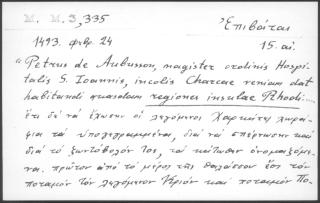 M. M. 3, 335
Ἐπιβάται
1493. φεβρ. 24
15. αἰ.
"Petrus de Aubusson, magister ordinis Hospi-
talis S. Ioannis, incolis Charcae veniam dat
habitandi quasdam regiones insulae Rhodi....
ἔτι δὲ νὰ ἔχωσην οἱ λεγόμενοι Χαρκίται χωρά-
φια τὰ ὑπογεγραμμένα, διὰ νὰ σπέρνωσην καὶ
διὰ τὸ ζωντόβολόν τος, τὰ κάτωθεν ὀνομαζόμε-
να. πρῶτον ἀπὸ τὸ μέρος τῆς θαλάσσου ἕως τὸν
ποταμὸν τὸν λεγόμενον καὶ ποταμὸν Πο-